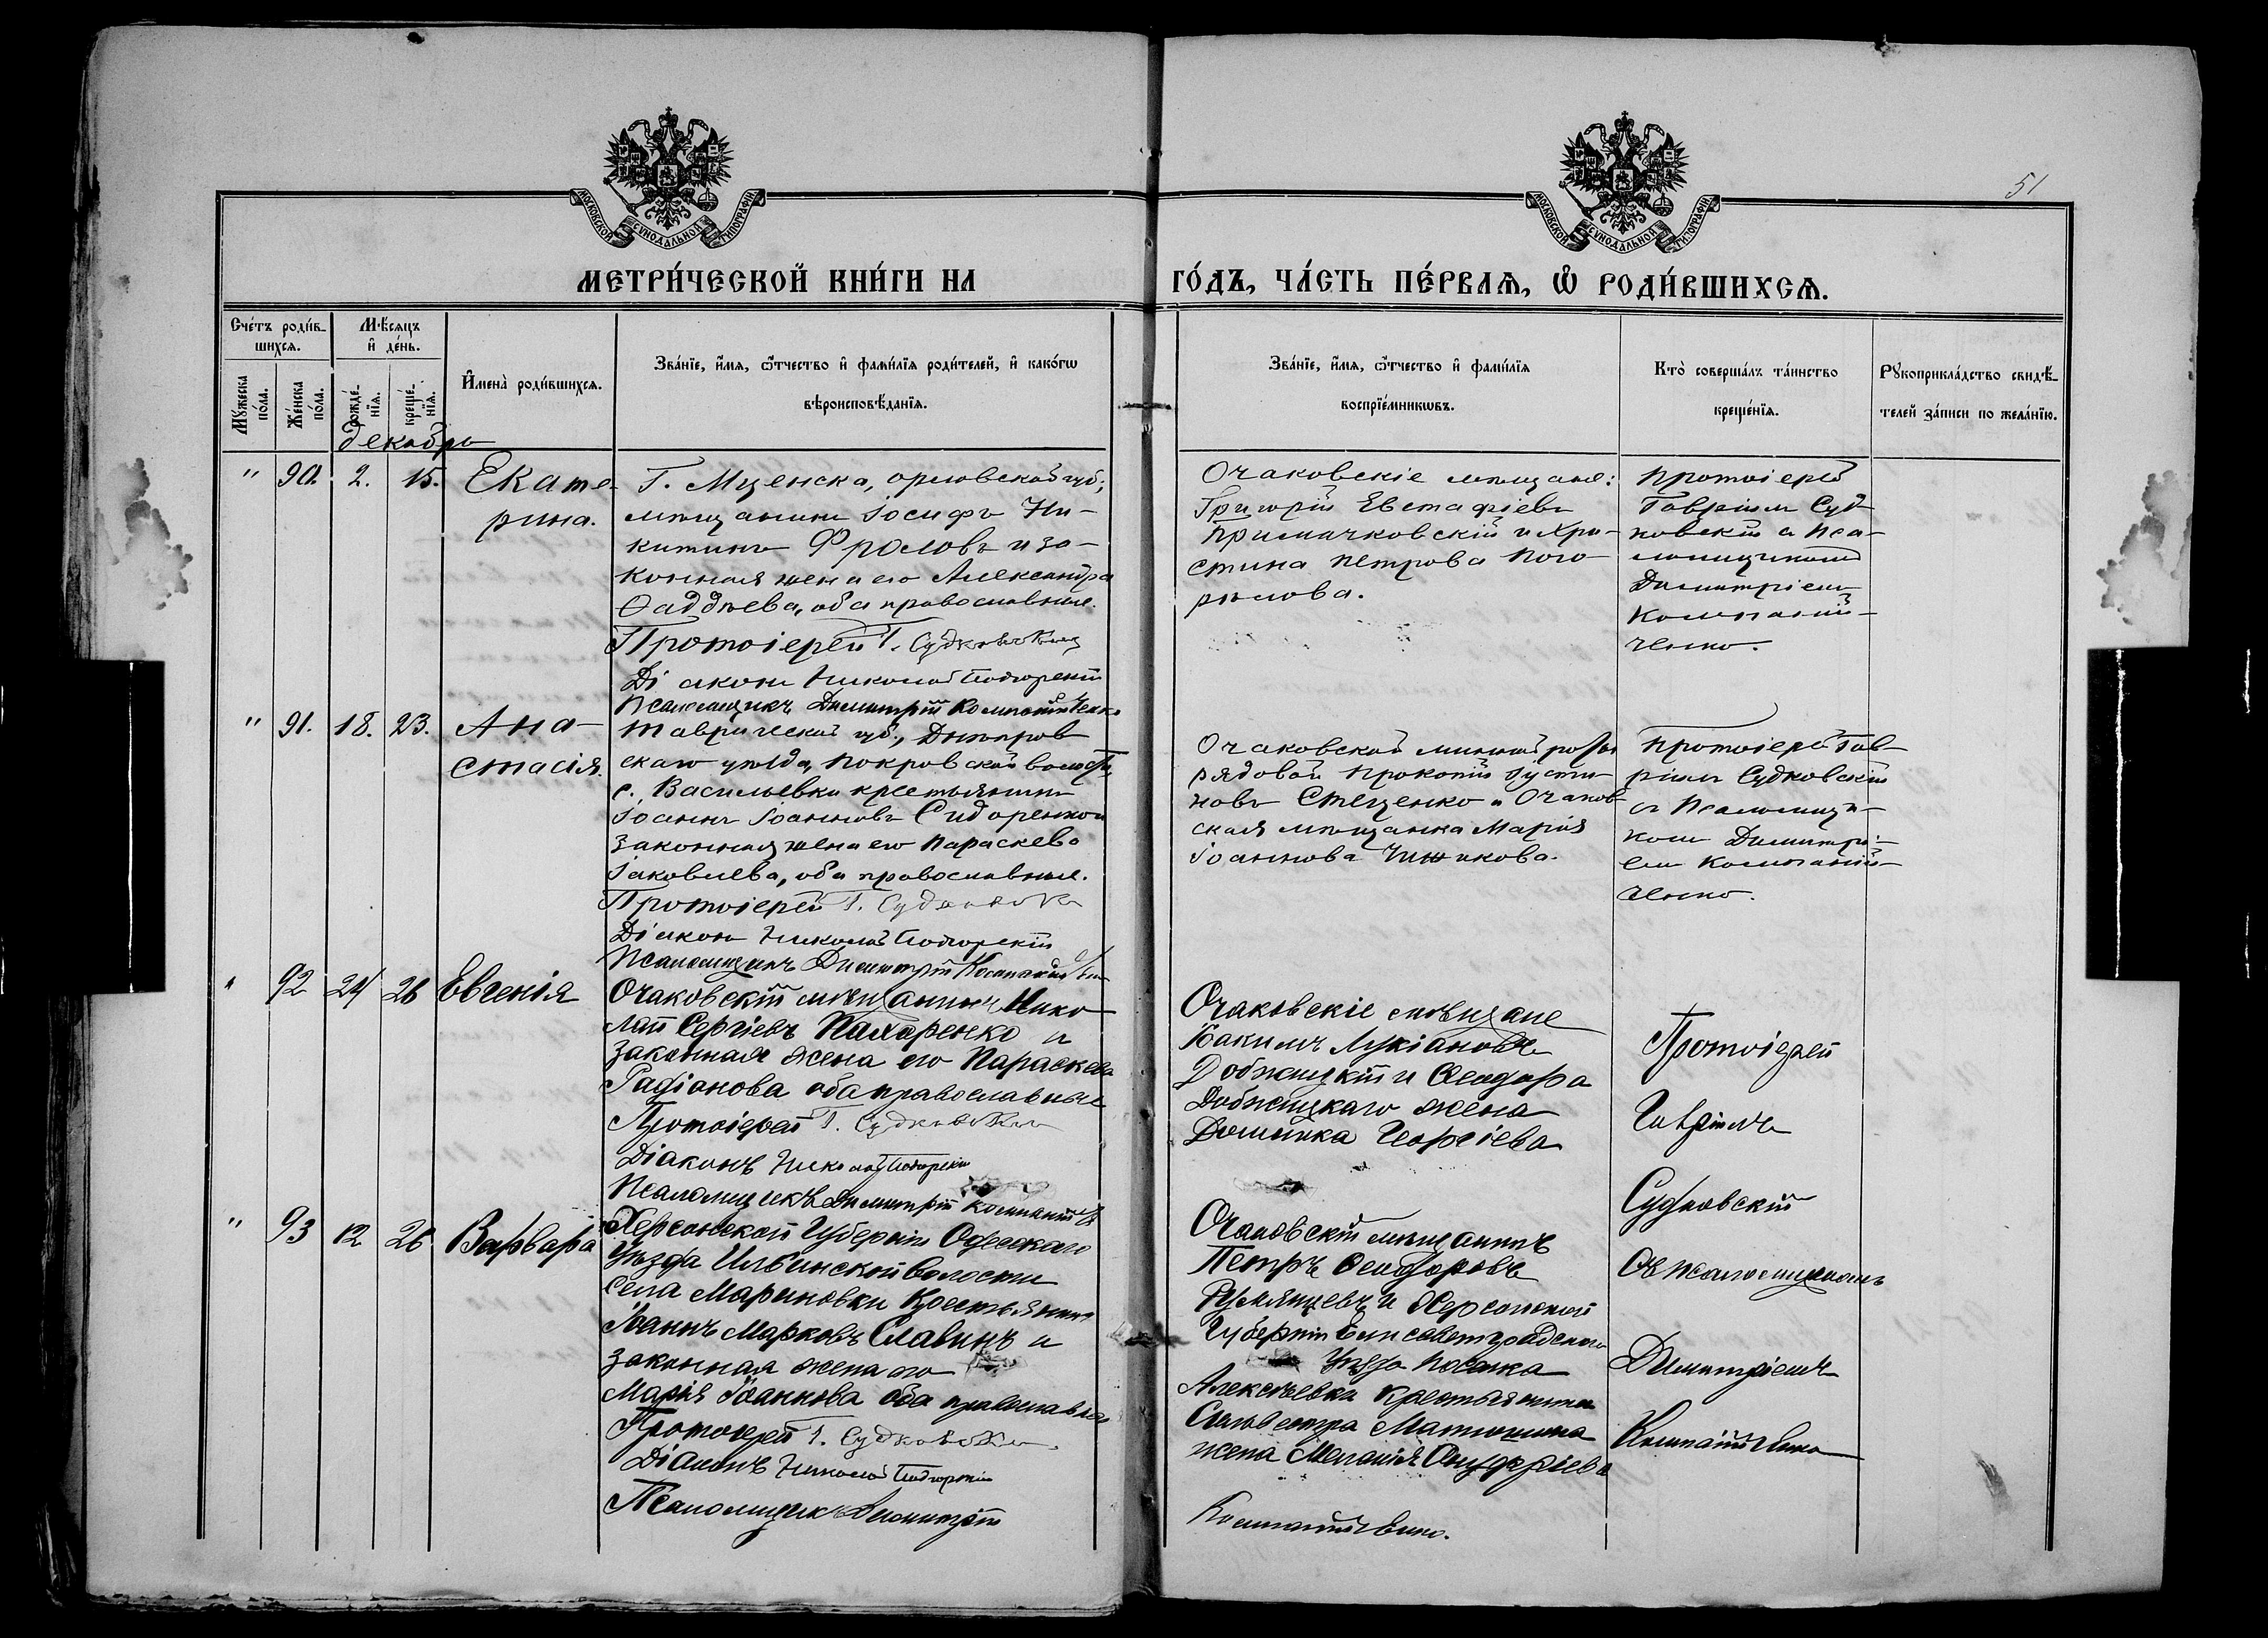 51
МОСКОВСКОЙ СѴНОДАЛЬНОЙ ТИПОГРАФІИ
МОСКОВСКОЙ СѴНОДАЛЬНОЙ ТИПОГРАФІИ
МЕТРИ́ЧЕСКОЙ КНИ́ГИ НА
ГО́ДЪ, ЧА́СТЬ ПЕ́РВАѦ, Ѡ РОДИ́ВШИХСѦ.
Сче́тъ роди́в-
шихсѧ.
Мꙋ́жеска по́ла.
Же́нска по́ла.
Мѣ́сѧцъ
и҆ де́нь.
рожде́-
нїѧ.
креще́-
нїѧ.
И҆мена̀ роди́вшихсѧ.
Зва́нїе, и҆́мѧ, ѻ҆́тчество и҆ фами́лїѧ роди́телей, и҆ како́гѡ
вѣроисповѣ́данїѧ.
Зва́нїе, и҆́мѧ, ѻ҆́тчество и҆ фами́лїѧ
воспрїе́мникѡвъ.
Кто̀ соверша́лъ та́инство
креще́нїѧ.
Рꙋкоприкла́дство свидѣ́-
телей за́писи по жела́нїю.
декабрь
" 90. 2. 15.
Екате-
рина.
Г. Мценска, орловской губ.,
мѣщанинъ Іосифъ Ни-
китинъ Фроловъ и за-
конная жена его Александра
Ѳаддѣева, оба православные.
Протоіерей Г. Судковскій
Діаконъ Николай Подгорскій
Псаломщикъ Димитрій Компанійченко
Очаковскіе мѣщане:
Григорій Евстафіевъ
Примачковскій и Хри-
стина Петрова Пого-
рѣлова.
Протоіерей
Гавріилъ Суд-
ковскій съ Пса-
ломщикомъ
Димитріемъ
Компаній-
ченко.
" 91. 18. 23.
Ана-
стасія.
Таврической губ., Днѣпров
скаго уѣзда, Покровской волости,
с. Васильевки крестьянинъ
Іоаннъ Іоанновъ Сидоренко и
законная жена его Параскева
Іаковлева, оба православные.
Протоіерей Г. Судковскій
Діаконъ Николай Подгорскій
Псаломщикъ Димитрій Компанійченко
Очаковской минной роты
рядовой Прокопій Іусти-
новъ Стеценко и Очаков
ская мѣщанка Марія
Іоаннова Чижикова.
Протоіерей Гав-
ріилъ Судковскій
съ Псаломщи-
комъ Димитрі-
емъ Компаній-
ченко.
" 92 24 26 Евгенія
Очаковскій мѣщанинъ Нико
лай Сергіевъ Пахаренко и
законная жена его Параскева
оба православные
Протоіерей Г. Судковскій
Діаконъ Николай Подгорскій
Псаломщикъ Димитрій Компанійченко
Очаковскіе мѣщане
Іоакимъ Лукіановъ
Добжицкій и Ѳеодора
Добжицкаго жена
Домника Георгіева
Протоіерей
Гавріилъ
Судковскій
Съ псаломщикомъ
Димитріемъ
Компанійченко
" 93 12 26 Варвара
Херсонской Губерніи Одесскаго
Уѣзда Ильинской Волости
села Мариновки Крестьянинъ
Іоаннъ Марковъ Славинъ и
законная жена его
Марія Іоаннова оба православные
Протоіерей Г. Судковскій
Діаконъ Николай Подгорскій
Псаломщикъ Димитрій
Очаковскій мѣщанинъ
Петръ Ѳеодоровъ
Румянцевъ и Херсонской
Губерніи Елисаветградскаго
Уѣзда поселка
Алексѣевки крестьянина
Сильвестра Матюшина
жена Меланія
Компанійченко.